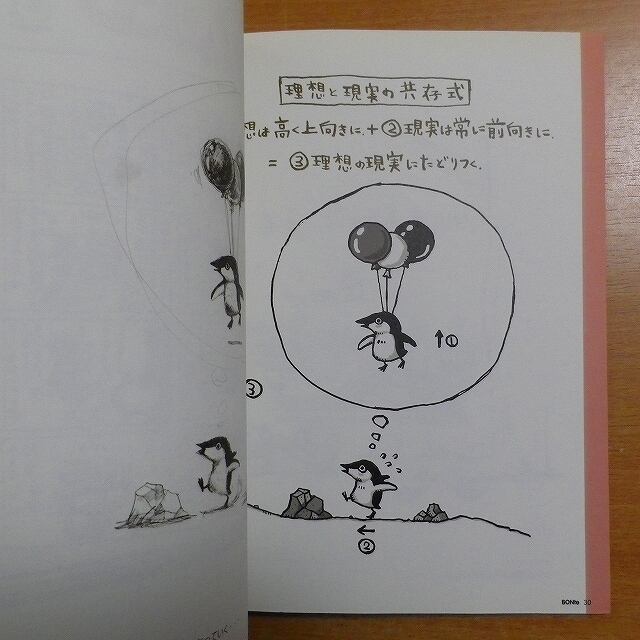 理想と現実の共存式
想は高く上向きに.+②現実は常に前向きに.
=③理想の現実にたどりつく.
↑①
③
←②
BONte 30